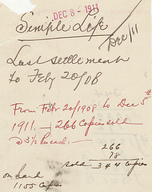 DEC 8 - 1911
Simple Life
Dec/11
Last settlement
to Feby 20/08
From Feby 20/1908 to Dec 5th
1911. — 266 Copies sold
@ 3½
266
78
sold 344 Copies
on hand
1155 Copies